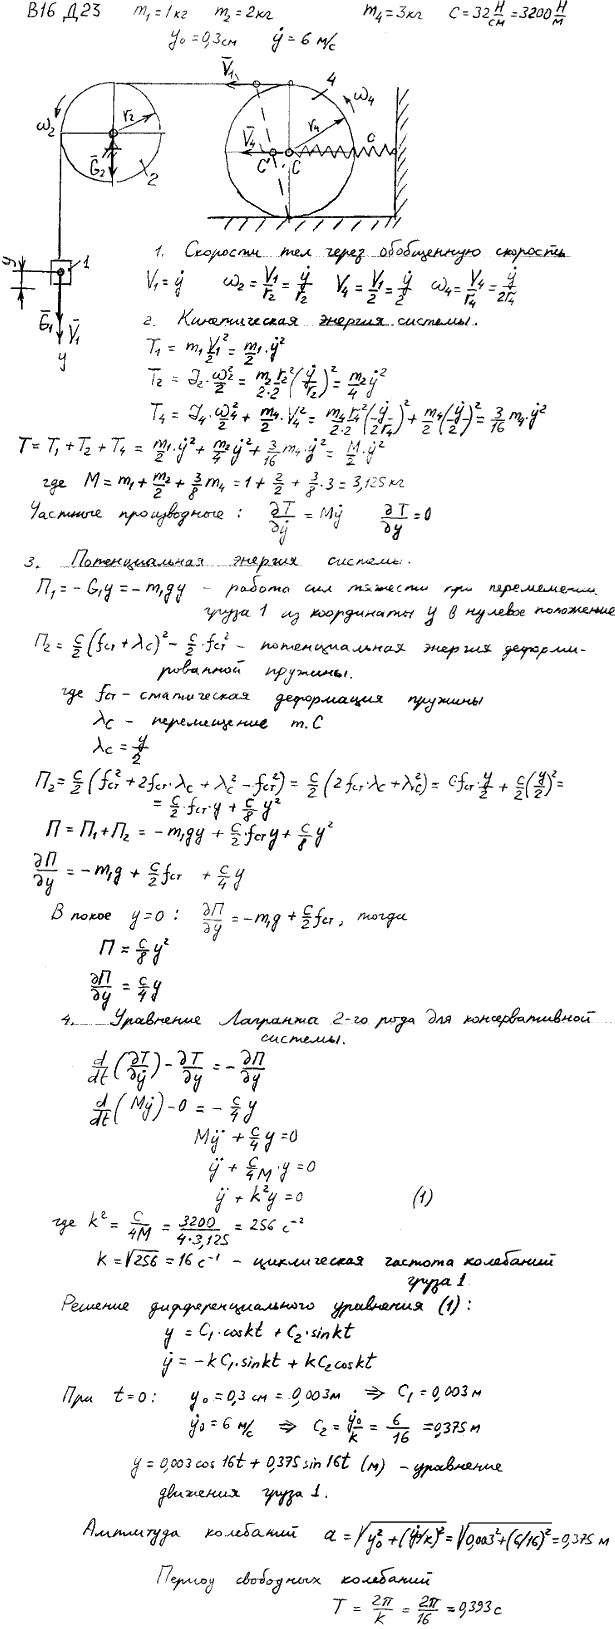 В16 Д23 m₁=1кг m₂=2кг m₄=3кг C=32 Н/см=3200 Н/м
y₀=0,3см ẏ=6 м/с
V̄₁ 4
ω₂ r₂ ω₄
V̄₄ r₄ c
Ḡ₂ 2 C' C
y 1
Ḡ₁ V̄₁
y
1. Скорости тел через обобщенную скорость
V₁=ẏ ω₂=V₁/r₂=ẏ/r₂ V₄=V₁/2=ẏ/2 ω₄=V₄/r₄=ẏ/2r₄
2. Кинетическая энергия системы.
T₁=m₁V₁²/2=m₁/2·ẏ²
T₂=J₂·ω₂²/2=m₂r₂²/2·2(ẏ/r₂)²=m₂/4ẏ²
T₄=J₄·ω₄²/2+m₄/2·V₄²=m₄r₄²/2·2(ẏ/2r₄)²+m₄/2(ẏ/2)²=3/16 m₄·ẏ²
T=T₁+T₂+T₄=m₁/2·ẏ²+m₂/4ẏ²+3/16m₄·ẏ²=M/2·ẏ²
где M=m₁+m₂/2+3/8m₄=1+2/2+3/8·3=3,125кг
Частные производные: ∂T/∂ẏ=Mẏ ∂T/∂y=0
3. Потенциальная энергия системы.
П₁=-G₁y=-m₁gy - работа сил тяжести при перемещении
груза 1 из координаты y в нулевое положение
П₂=c/2(fст+λc)²-c/2·fст² - потенциальная энергия деформи-
рованной пружины.
где fст - статическая деформация пружины
λc - перемещение т.С
λc=y/2
П₂=c/2(fст²+2fст·λc+λc²-fст²)=c/2(2fст·λc+λc²)=cfст·y/2+c/2(y/2)²=
=c/2·fст·y+c/8y²
П=П₁+П₂=-m₁gy+c/2·fстy+c/8y²
∂П/∂y=-m₁g+c/2fст+c/4y
В покое y=0: ∂П/∂y=-m₁g+c/2fст, тогда
П=c/8y²
∂П/∂y=c/4y
4. Уравнение Лагранжа 2-го рода для консервативной
системы.
d/dt(∂T/∂ẏ)-∂T/∂y=-∂П/∂y
d/dt(Mẏ)-0=-c/4y
Mÿ+c/4y=0
ÿ+c/4M·y=0
ÿ+k²y=0 (1)
где k²=C/4M=3200/4·3,125=256 с⁻²
k=√256=16с⁻¹ - циклическая частота колебаний
груза 1.
Решение дифференциального уравнения (1):
y=C₁·coskt+C₂·sinkt
ẏ=-kC₁·sinkt+kC₂coskt
При t=0: y₀=0,3см=0,003м ⇒ C₁=0,003м
ẏ₀=6м/с ⇒ C₂=ẏ₀/k=6/16=0,375м
y=0,003cos16t+0,375sin16t (м) - уравнение
движения груза 1.
Амплитуда колебаний a=√y₀²+(ẏ/k)²=√0,003²+(6/16)²=0,375м
Период свободных колебаний
T=2π/k=2π/16=0,393с